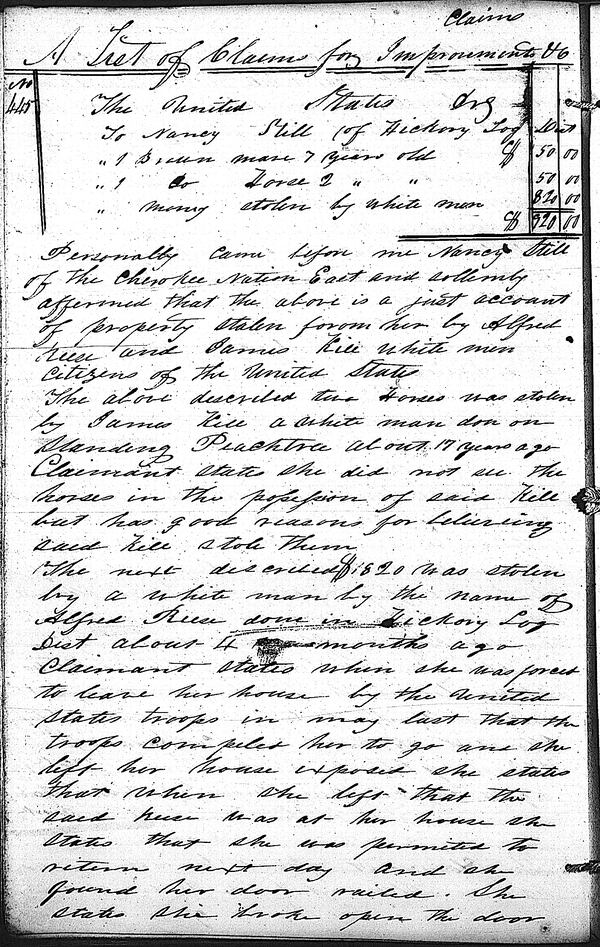 Claims
A List of Claims for Improvements &c
No
445
The United States Drs
To Nancy Still (of Hickory Log Dist
" 1 Brown mare 7 years old $ 50 00
" 1 Do Horse 2 " " 50 00
" money stolen by white men 820 00
$ 920 00
Personally came before me Nancy Still
of the Cherokee Nation East and sollemly
affermed that the above is a just account
of property stolen forom her by Alfred
Reese and James Kile white men
Citizens of the United States
The above described two Horses was stolen
by James Kile a white man don on
Standing Peachtree about 17 years ago
Claimant states she did not see the
horses in the possession of said Kile
but has good reasons for believeing
said Kile stole them
The next described $820 was stolen
by a white man by the name of
Alfred Reese done in Hickory Log
Dist about 4 months ago
Claimant states when she was forced
to leave her house by the United
States troops in may last that the
troops compeled her to go and she
left her house exposed she states
that when she left that the
said Reese was at her house she
states that she was permited to
return next day and she
found her door nailed. She
states she broke open the door